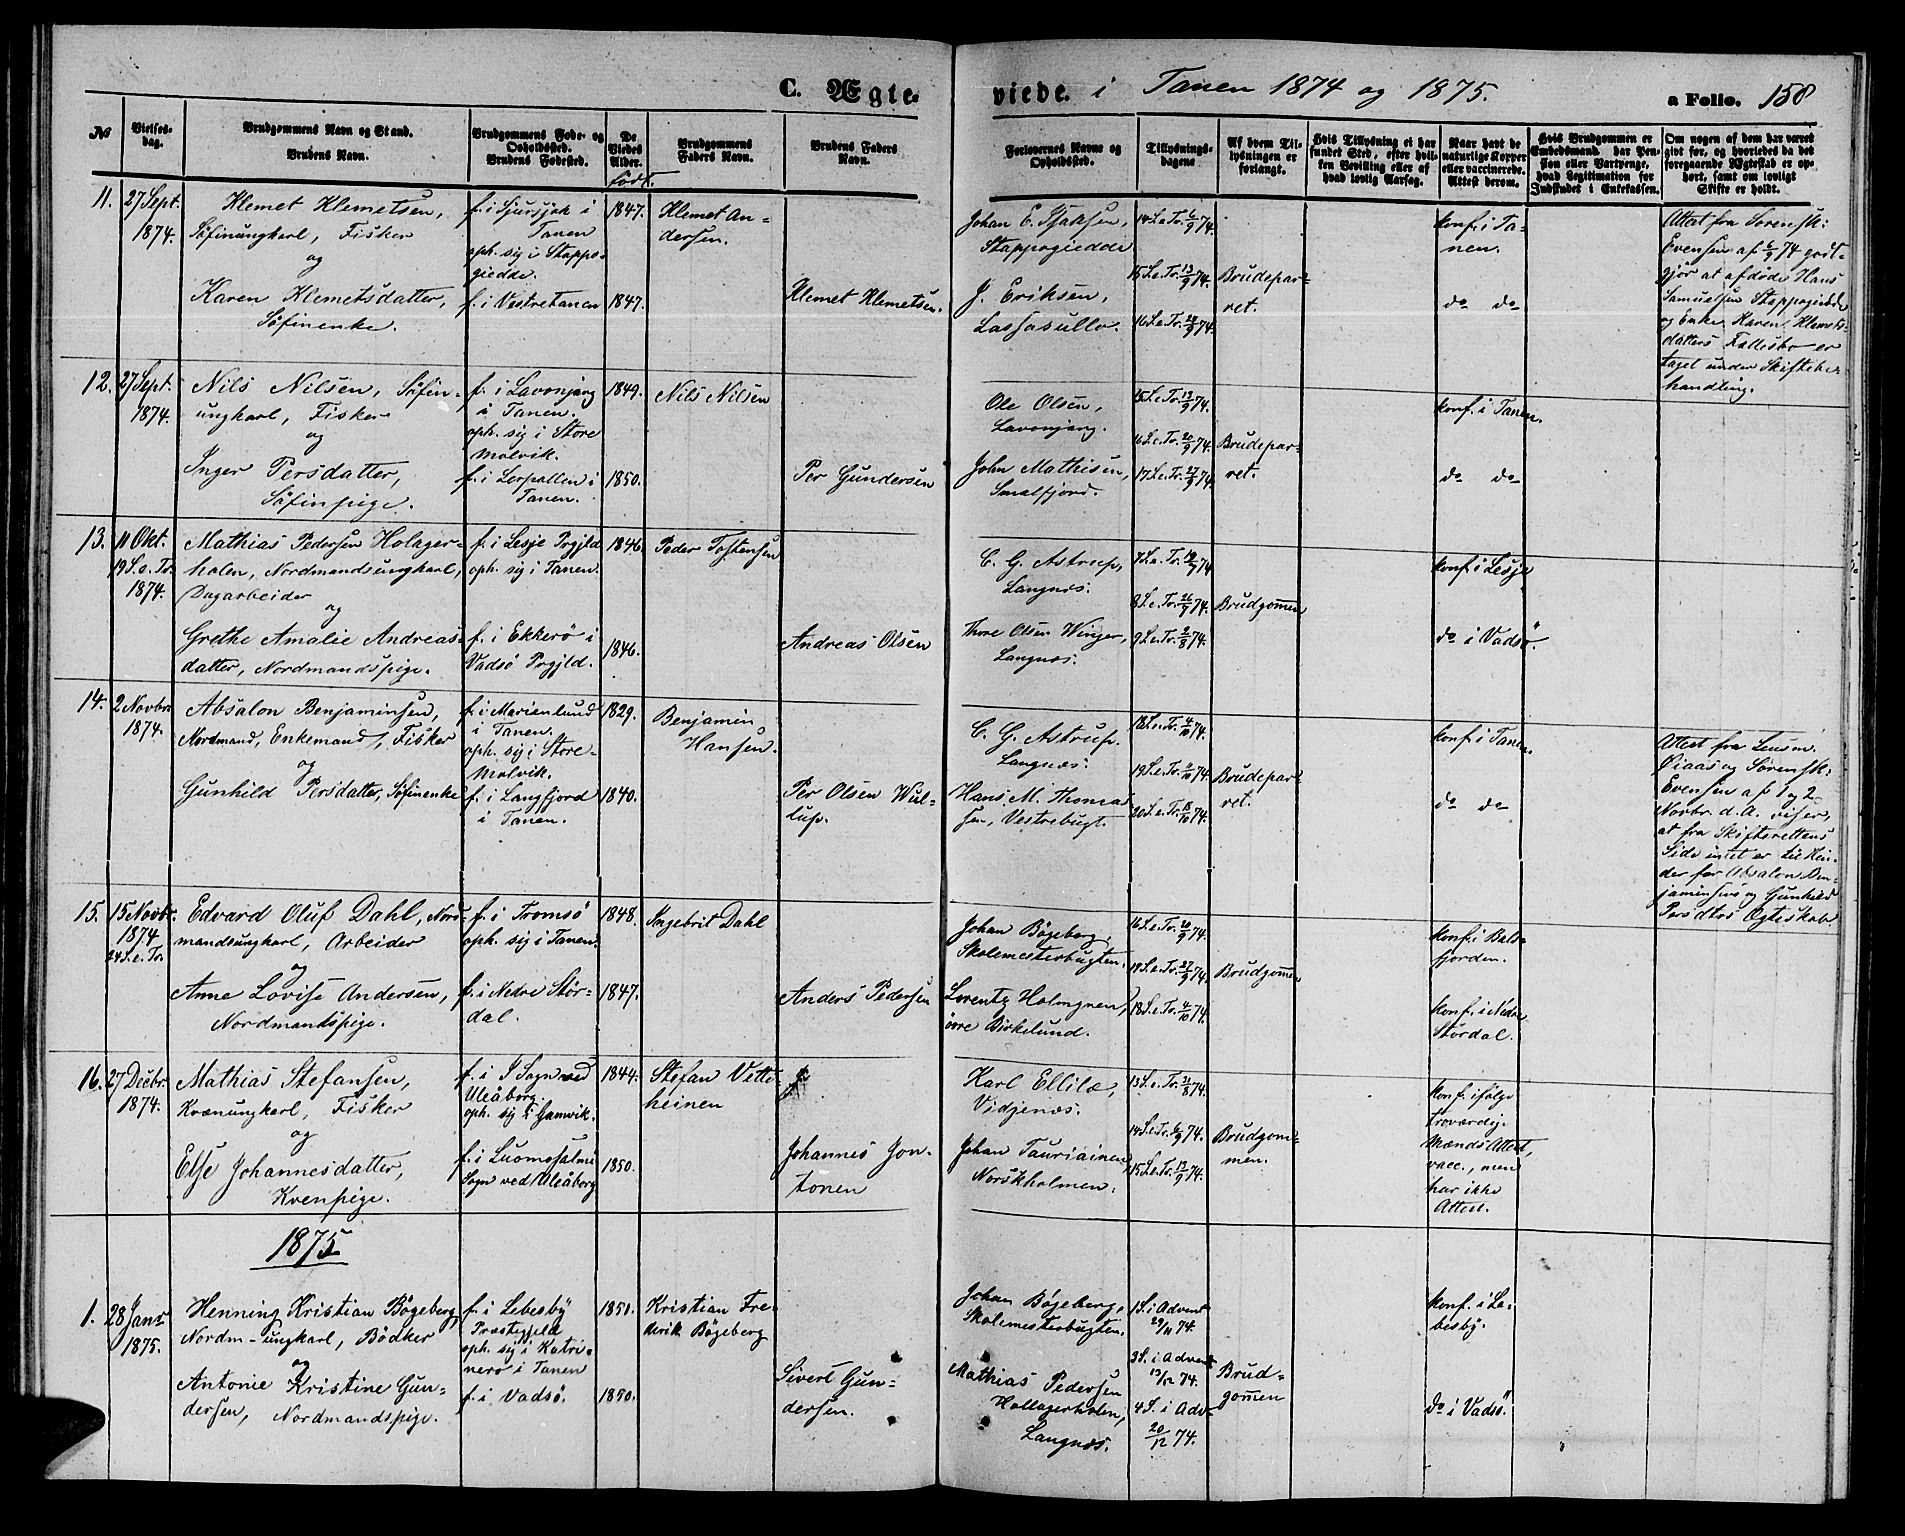 C. Ægte-
viede. i Tanen 1874 og 1875.
a Folio. 158
№
Vielses-
dag.
Brudgommens Navn og Stand.
Brudens Navn.
Brudgommens Føde- og
Opholdssted.
Brudens Fødested.
De
Viedes
Alder.
født.
Brudgommens
Faders Navn.
Brudens Faders
Navn.
Forlovernes Navne og
Opholdssted.
Tillysnings-
dagene
Af hvem Til-
lysningen er
forlangt.
Hvis Tillysning ei har
fundet Sted, efter hvil-
ken Bevilling eller af
hvad lovlig Aarsag.
Naar havt de
naturlige Kopper
eller vaccinerede.
Attest derom.
Hvis Brudgommen er
Embedsmand, har Pen-
sion eller Vartpenge,
hvad Legitimation for
Indskudet i Enkekassen.
Om nogen af dem har været
gift før, og hvorledes da det
foregaaende Ægteskab er op-
hørt, samt om lovligt
Skifte er holdt.
11.
27 Sept.
1874.
Klemet Klemetsen,
Søfinungkarl, Fisker
og
Karen Klemetsdatter,
Søfinenke.
f. i Sjursjok i
Tanen
oph. sig i Stappo-
giedde.
f. i Vestretanen
1847.
1847.
Klemet An-
dersen.
Klemet Klemetsen.
Johan E. Isaksen,
Stappogiedde
J. Eriksen,
Lassasullo.
14 S. e. Tr. 6/9 74.
15 S. e. Tr. 13/9 74.
16 S. e. Tr. 20/9 74.
Brudepar-
ret.
konf. i Ta-
nen.
do do
Attest fra Sørensk:
Evensen af 6/9 74 godt-
gjør at afdøde Hans
Samuelsen Stappogiedde
og Enke Karen Klemets-
datters Fællesbo er
taget under Skiftebe-
handling.
12.
27 Sept.
1874.
Nils Nilsen, Søfin-
ungkarl, Fisker
og
Inger Persdatter,
Søfinpige.
f. i Lavonjarg
i Tanen.
oph. sig i Store
Molvik.
f. i Lerpollen i
Tanen.
1849.
1850.
Nils Nilsen
Per Gundersen
Ole Olsen,
Lavonjarg.
John Mathisen,
Smalfjord.
15 S. e. Tr. 13/9 74.
16 S. e. Tr. 20/9 74.
17 S. e. Tr. 27/9 74.
Brudepar-
ret.
konf. i Tanen.
do do
13.
11 Okt.
19 S. e. Tr.
1874.
Mathias Pedersen Holager-
holen, Nordmandsungkarl,
Dagarbeider
og
Grethe Amalie Andreas-
datter, Nordmandspige.
f. i Lesje Prgjld
oph. sig i Tanen.
f. i Ekkerø i
Vadsø Prgjld.
1846
1846.
Peder Tostensen
Andreas Olsen
C. G. Astrup,
Langnæs.
Thore Olsen Winger,
Langnæs.
7 S. e. Tr.
8 S. e. Tr.
9 S. e. Tr.
Brudgom̄en
konf. i Lesje
do i Vadsø.
14.
2 Novbr.
1874.
Absalon Benjaminsen,
Nordmand, Enkemand, Fisker
og
Gunhild Persdatter, Søfinenke
f. i Marienlund
i Tanen.
oph. sig i Store-
Molvik.
f. i Langfjord
i Tanen.
1829.
1840.
Benjamin
Hansen.
Per Olsen Wul-
lup.
C. G. Astrup.
Langnæs.
Hans M. Thomas-
sen, Vestrebugt.
18 S. e. Tr. 4/10 74.
19 S. e. Tr. 11/10 74.
20 S. e. Tr. 18/10 74.
Brudepar-
ret.
konf. i Tanen.
do do
Attest fra Lensm.
Øiaas og Sørensk:
Evensen af 1 og 2
Novbr. d. A. viser,
at fra Skifterettens
Side intet er til Hin-
der for Absalon Ben-
jaminsens og Gunhild
Persdtrs Ægteskab.
15.
15 Novbr.
1874
24 S. e. Tr.
Edvard Oluf Dahl, Nord-
mandsungkarl, Arbeider
og
Anne Lovise Andersen,
Nordmandspige.
f. i Tromsø
oph. sig i Tanen.
f. i Nedre Stør-
dal.
1848.
1847.
Ingebrit Dahl
Anders Pedersen
Johan Bøgeberg,
Skolemesterbugten.
Lorentz Holmgren,
øvre Birkelund.
16 S. e. Tr. 20/9 74.
17 S. e. Tr. 27/9 74.
18 S. e. Tr. 4/10 74.
Brudgom̄en
konf. i Bals-
fjorden.
konf. i Nedre
Størdal.
16.
27 Decbr.
1874.
Mathias Stefansen,
Kvænungkarl, Fisker
og
Else Johannesdatter,
Kvenpige.
f. i I Sogn ved
Uleåborg.
oph. sig i Gamvik.
f. i Suomosalmi
Sogn ved Uleåborg
1844.
1850.
Stefan Vette-
heinen
Johannes Jon-
tonen
Karl Ellilæ,
Vidjenæs.
Johan Tauriainen,
Norskholmen.
13 S. e. Tr. 31/8 74.
14 S. e. Tr. 6/9 74.
15 S. e. Tr. 13/9 74.
Brudgom-
men.
konf. ifølge
troværdig.
Mænds Attest,
vacc., men
har ikke
Attest.
1875
1.
28 Janr
1875.
Henning Kristian Bøgeberg,
Nordm-ungkarl, Bødker
og
Antonie Kristine Gun-
dersen, Nordmandspige.
f. i Lebesby
Præstegjeld
oph. sig i Katri-
nerø i Tanen
f. i Vadsø.
1851.
1850.
Kristian Fre-
derik Bøgeberg
Sivert Gun-
dersen.
Johan Bøgeberg,
Skolemesterbugten.
Mathias Pedersen
Hollagerholen,
Langnæs.
1 S. i Advent
29/11 74.
3 S. i Advent
13/12 74.
4 S. i Adv-
20/12 74.
Brud-
gom̄en
konf. i Le-
besby.
do i Vadsø.